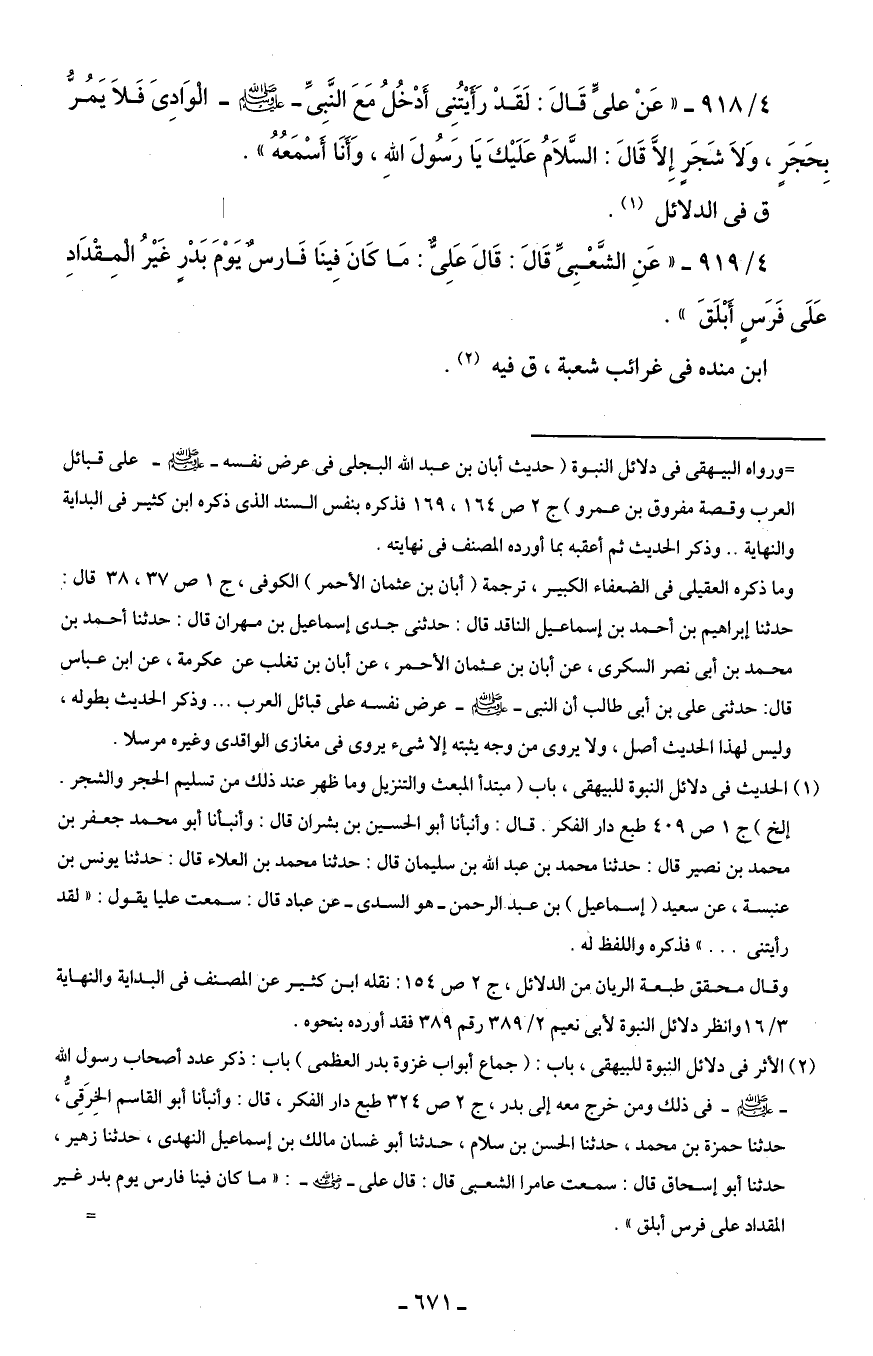 ٤/ ٩١٨ ـ « عَنْ علىٍّ قَالَ : لَقَدْ رَأَيْتُنِى أَدْخُلُ مَعَ النَّبِىِّ ـ ﷺ ـ الْوَادِىَ فَلاَ يَمُرُّ
بِحَجَرٍ ، وَلاَ شَجَرٍ إِلاَّ قَالَ : السَّلاَمُ عَلَيْكَ يَا رَسُولَ اللهِ ، وَأَنَا أَسْمَعُهُ » .
ق فى الدلائل (١) .
٤/ ٩١٩ ـ « عَنِ الشَّعْبِىِّ قَالَ : قَالَ عَلِىٌّ : مَا كَانَ فِينَا فَارِسٌ يَوْمَ بَدْرٍ غَيْرُ الْمِقْدَادِ
عَلَى فَرَسٍ أَبْلَقَ » .
ابن منده فى غرائب شعبة ، ق فيه (٢) .
=ورواه البيهقى فى دلائل النبوة ( حديث أبان بن عبد الله البجلى فى عرض نفسه ـ ﷺ ـ على قبائل
العرب وقصة مفروق بن عمرو ) ج ٢ ص ١٦٤ ، ١٦٩ فذكره بنفس السند الذى ذكره ابن كثير فى البداية
والنهاية .. وذكر الحديث ثم أعقبه بما أورده المصنف فى نهايته .
وما ذكره العقيلى فى الضعفاء الكبير ، ترجمة ( أبان بن عثمان الأحمر ) الكوفى ، ج ١ ص ٣٧ ، ٣٨ قال :
حدثنا إبراهيم بن أحمد بن إسماعيل الناقد قال : حدثنى جدى إسماعيل بن مهران قال : حدثنا أحمد بن
محمد بن أبى نصر السكرى ، عن أبان بن عثمان الأحمر ، عن أبان بن تغلب عن عكرمة ، عن ابن عباس
قال: حدثنى على بن أبى طالب أن النبى ـ ﷺ ـ عرض نفسه على قبائل العرب ... وذكر الحديث بطوله ،
وليس لهذا الحديث أصل ، ولا يروى من وجه يثبته إلا شىء يروى فى مغازى الواقدى وغيره مرسلا .
(١) الحديث فى دلائل النبوة للبيهقى ، باب ( مبتدأ المبعث والتنزيل وما ظهر عند ذلك من تسليم الحجر والشجر .
إلخ ) ج ١ ص ٤٠٩ طبع دار الفكر . قال : وأنبأنا أبو الحسين بن بشران قال : وأنبأنا أبو محمد جعفر بن
محمد بن نصير قال : حدثنا محمد بن عبد الله بن سليمان قال : حدثنا محمد بن العلاء قال : حدثنا يونس بن
عنبسة ، عن سعيد ( إسماعيل ) بن عبد الرحمن ـ هو السدى ـ عن عباد قال : سمعت عليا يقول : « لقد
رأيتنى ... » فذكره واللفظ له .
وقال محقق طبعة الريان من الدلائل ، ج ٢ ص ١٥٤ : نقله ابن كثير عن المصنف فى البداية والنهاية
٣/ ١٦ وانظر دلائل النبوة لأبى نعيم ٢/ ٣٨٩ رقم ٣٨٩ فقد أورده بنحوه .
(٢) الأثر فى دلائل النبوة للبيهقى ، باب : ( جماع أبواب غزوة بدر العظمى ) باب : ذكر عدد أصحاب رسول الله
ـ ﷺ ـ فى ذلك ومن خرج معه إلى بدر ، ج ٢ ص ٣٢٤ طبع دار الفكر ، قال : وأنبأنا أبو القاسم الخِرَقِىُّ ،
حدثنا حمزة بن محمد ، حدثنا الحسن بن سلام ، حدثنا أبو غسان مالك بن إسماعيل النهدى ، حدثنا زهير ،
حدثنا أبو إسحاق قال : سمعت عامرا الشعبى قال : قال على ـ رضي الله عنه ـ : « ما كان فينا فارس يوم بدر غير
المقداد على فرس أبلق » . =
ـ ٦٧١ ـ